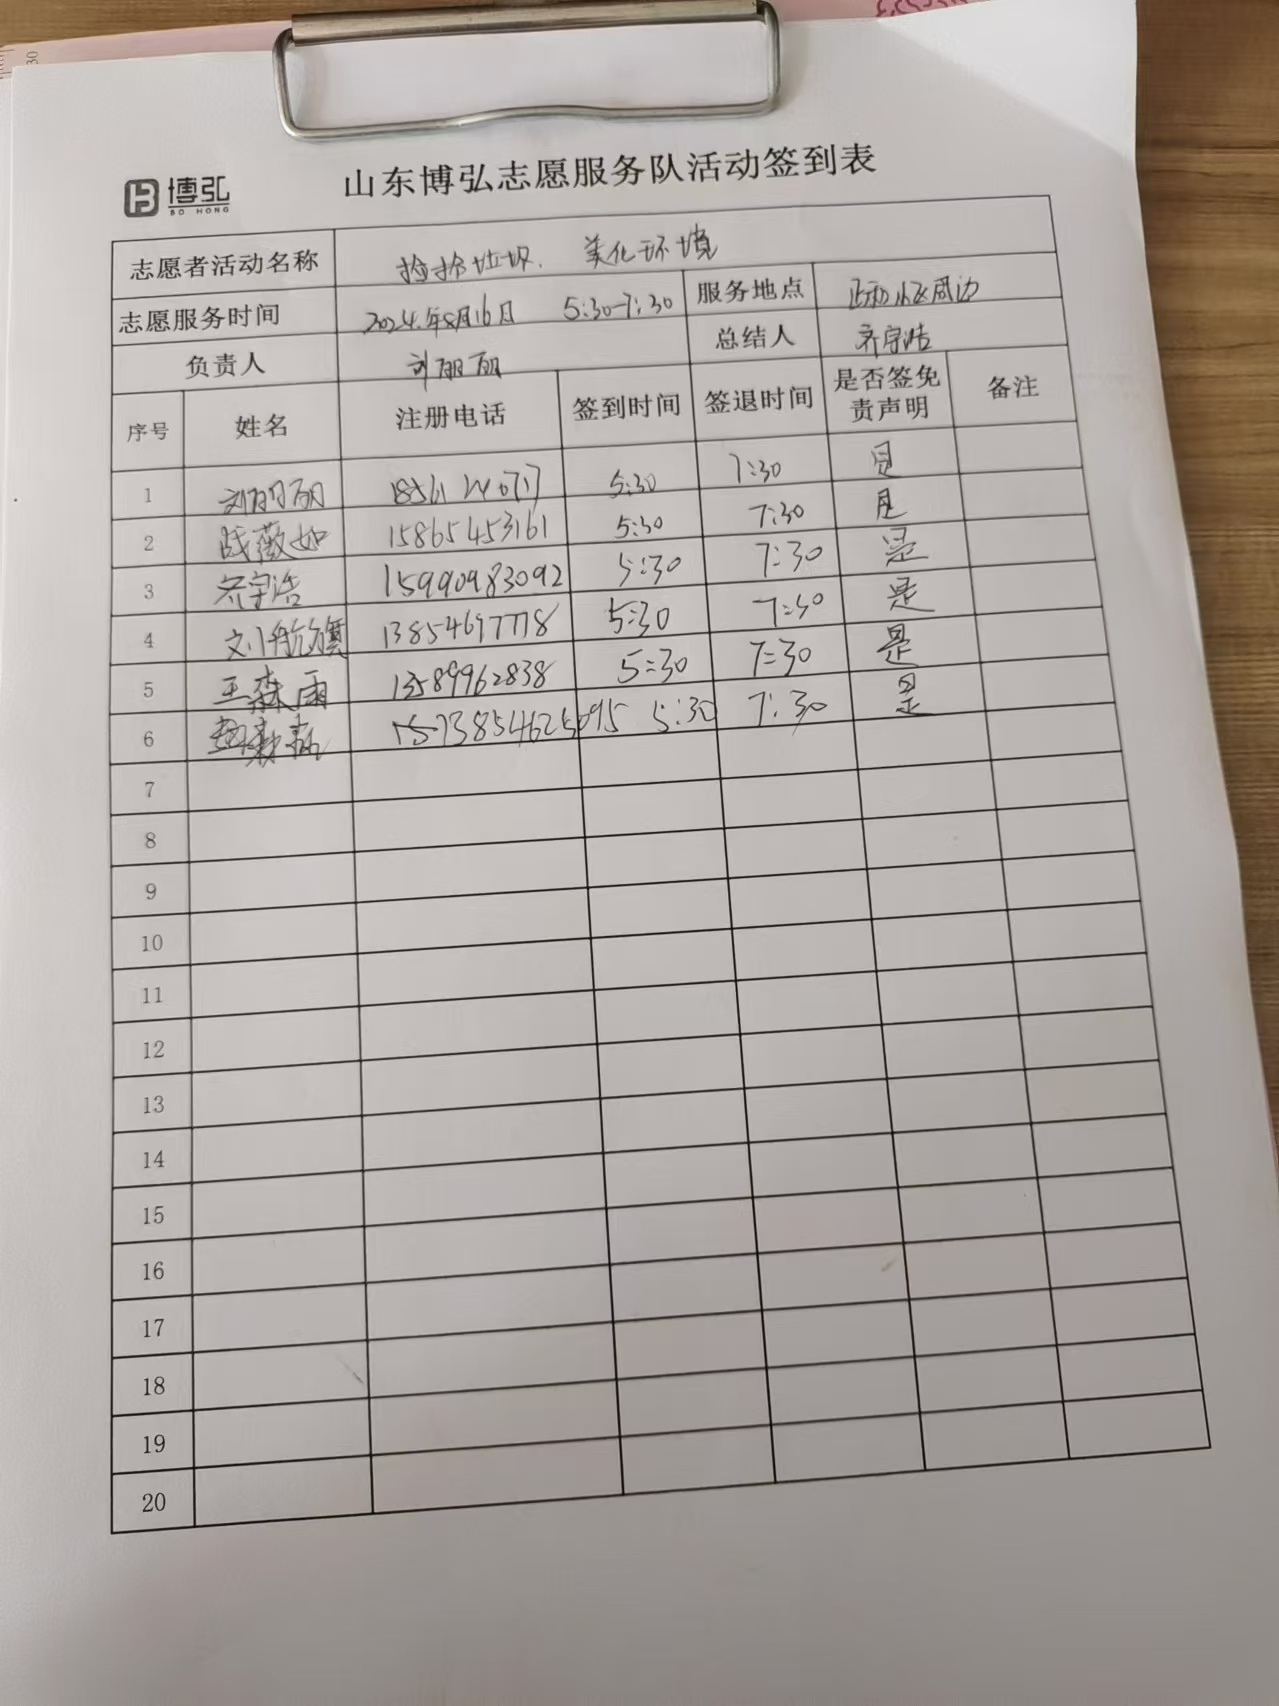 30
博弘
BO HONG
山东博弘志愿服务队活动签到表
志愿者活动名称 捡拾垃圾. 美化环境
志愿服务时间 2024.年8月16日 5:30-7:30 服务地点 小区周边
负责人 刘丽丽 总结人 齐宇浩
序号 姓名 注册电话 签到时间 签退时间 是否签免责声明 备注
1 刘丽丽 5:30 7:30 是
2 战薇如 15865453161 5:30 7:30 是
3 齐宇浩 15990983092 5:30 7:30 是
4 刘航旗 13854697778 5:30 7:30 是
5 王森雨 13589962838 5:30 7:30 是
6 5:30 7:30 是
7
8
9
10
11
12
13
14
15
16
17
18
19
20